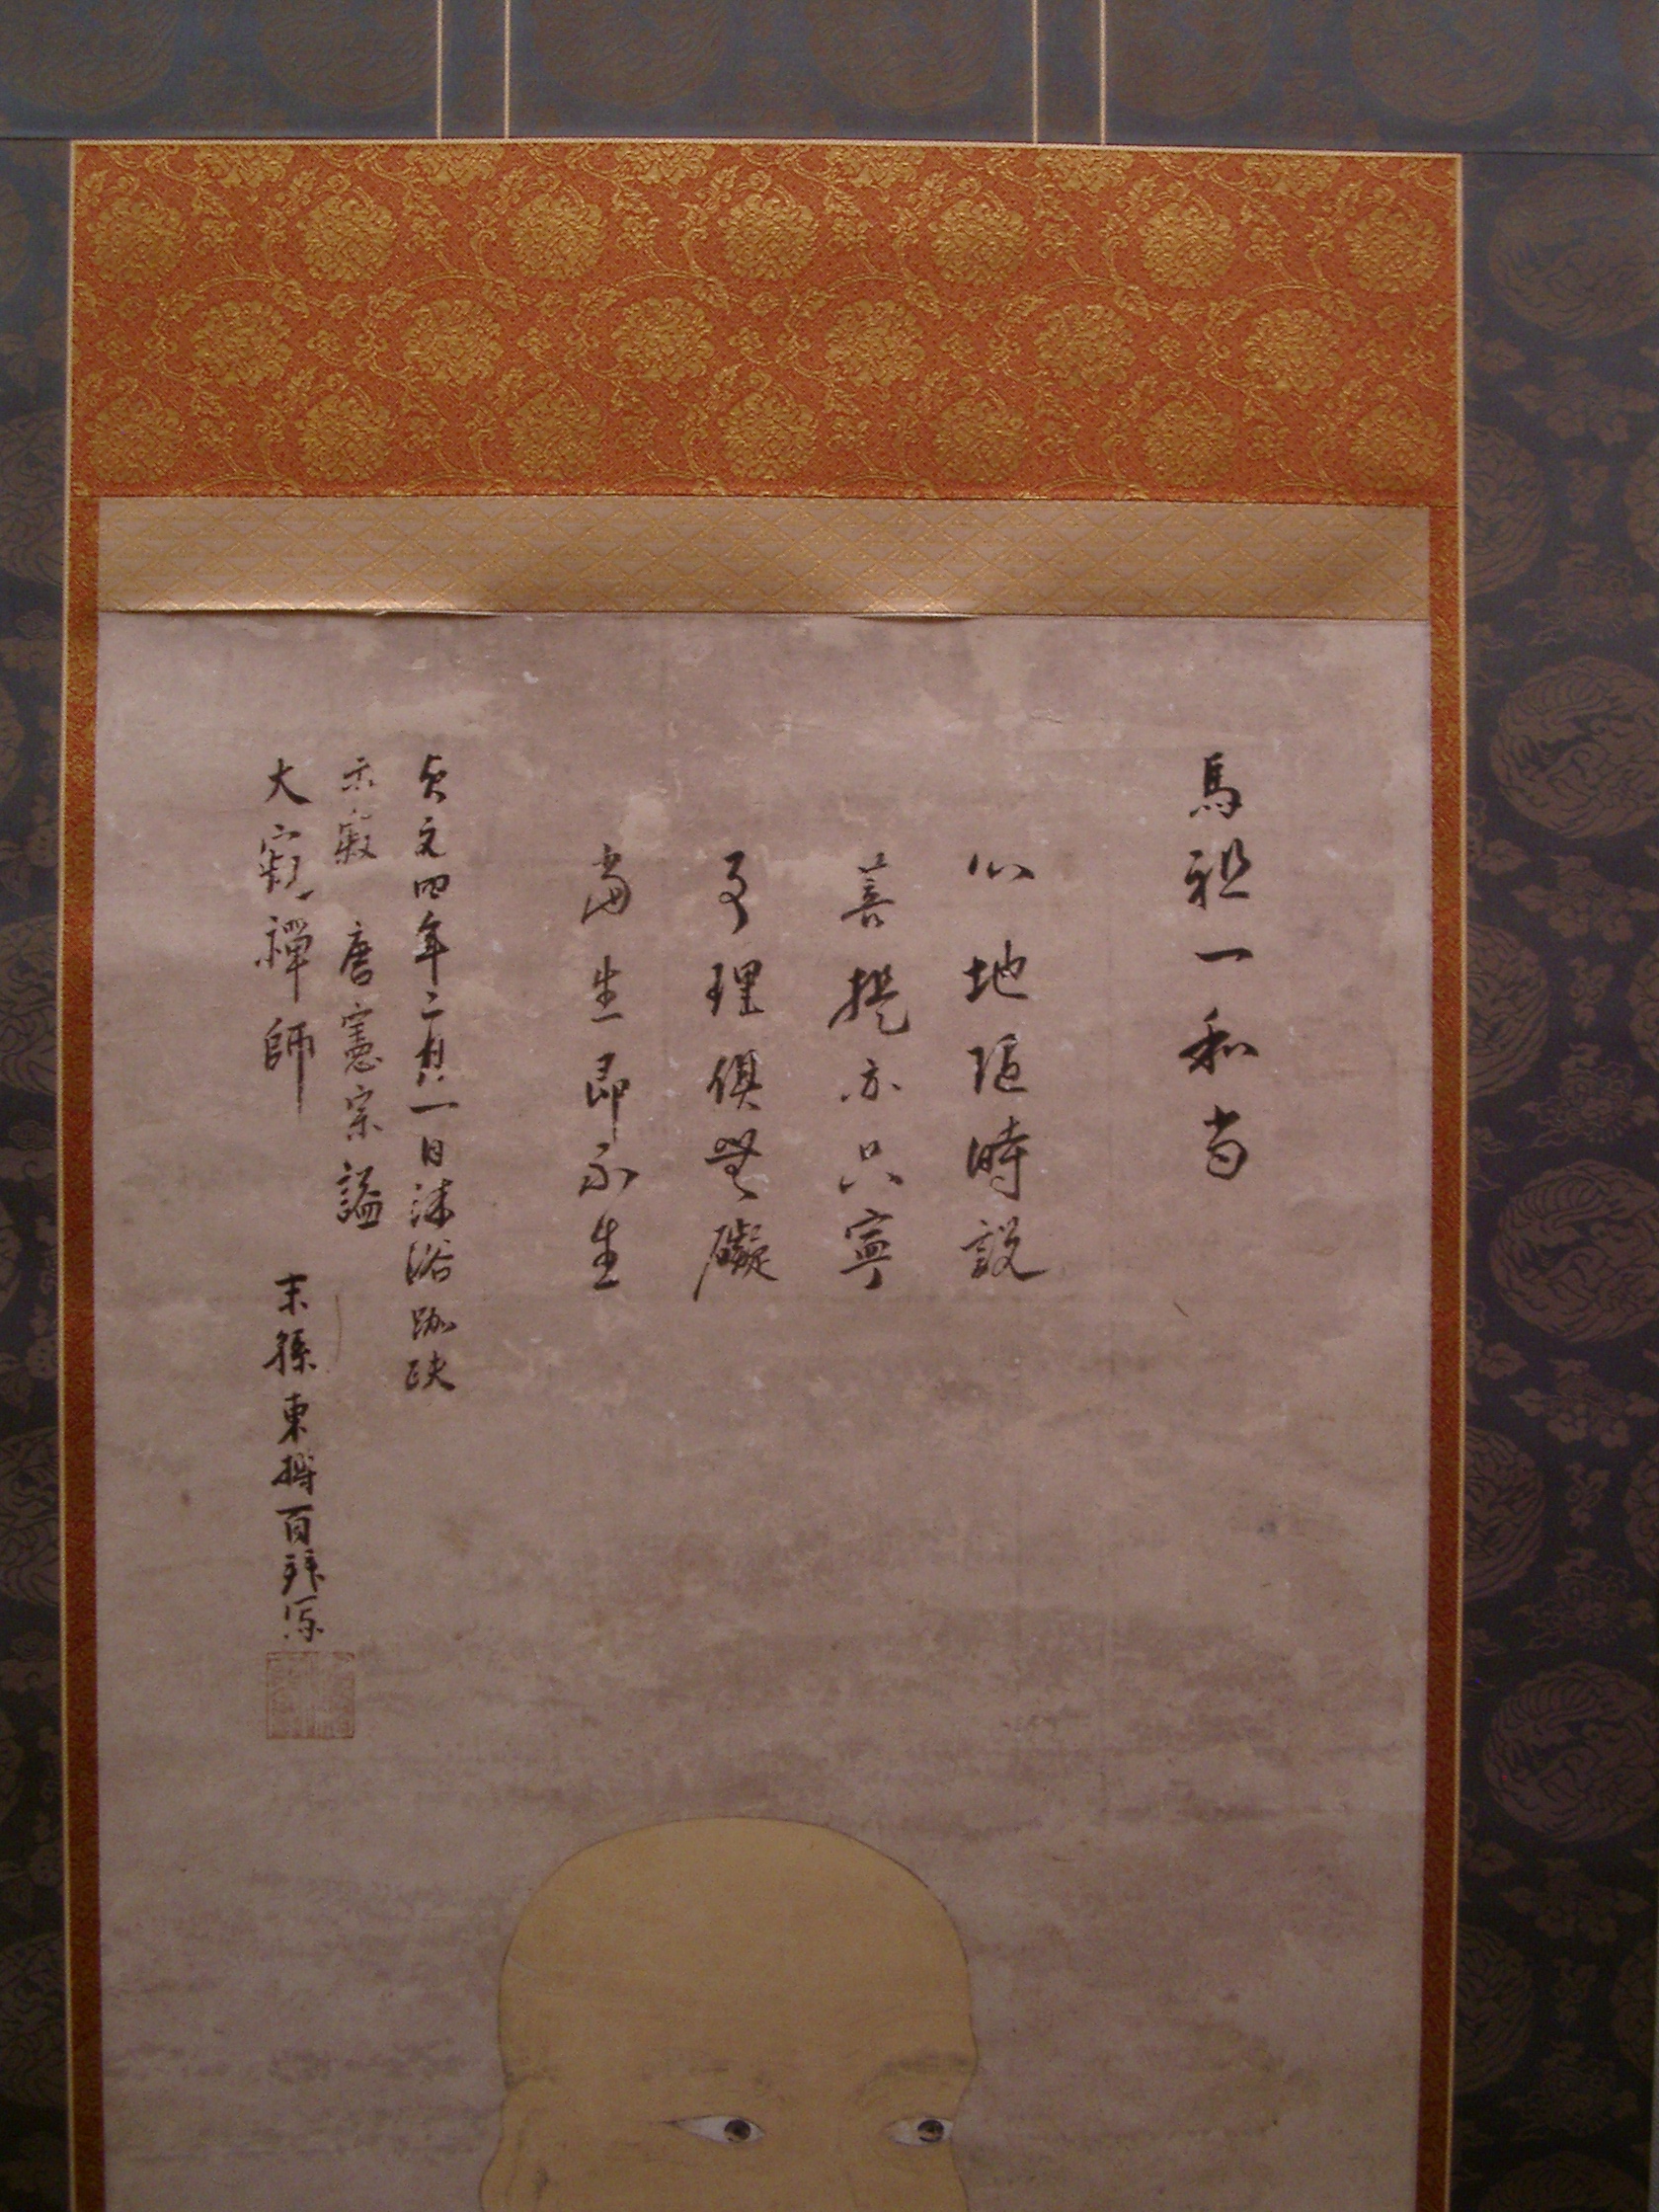 馬祖一和尚
心地隨時説
菩提亦只寧
事理俱無礙
當生即不生
貞元四年二月一日沐浴跏趺
示寂 唐憲宗謚
大寂禪師
末孫東百拜写